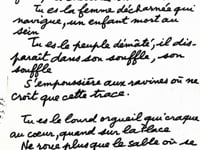 Tu es la femme décharnée qui
navigue, un enfant mort au
sein
Tu es le peuple démâté, il dis-
paraît dans son souffle, son
souffle
S'empoussière aux ravines où ne
croît que cette trace.
Tu es le lourd orgueil qui craque
au cœur, quand sur la place
Ne roue plus que le sable où se